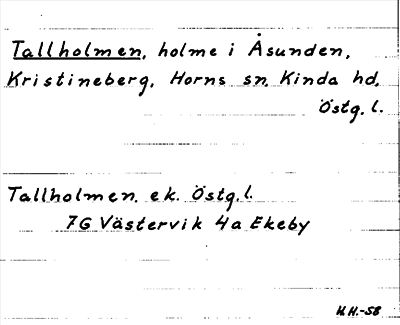 Tallholmen, holme i Åsunden,
Kristineberg, Horns sn, Kinda hd,
Östg. l.
Tallholmen. ek. Östg. l.
7G Västervik 4a Ekeby
H.H.-58